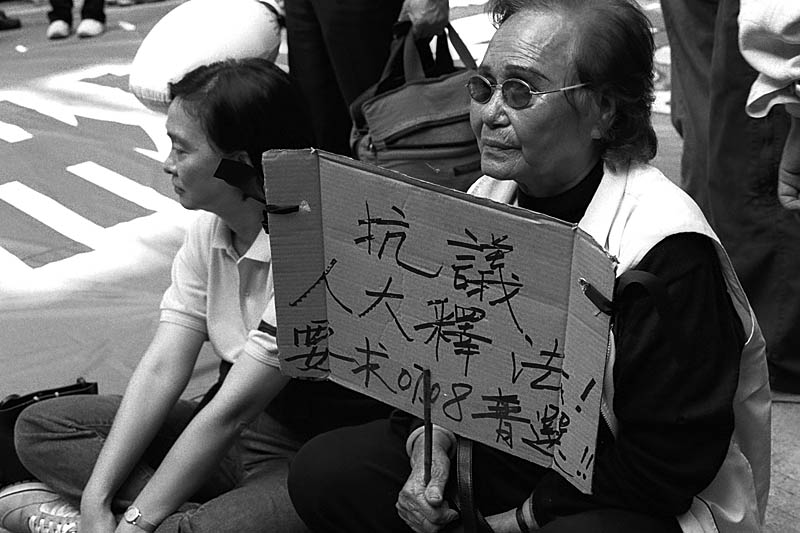 抗議
人大釋法!
要求0708普選!!